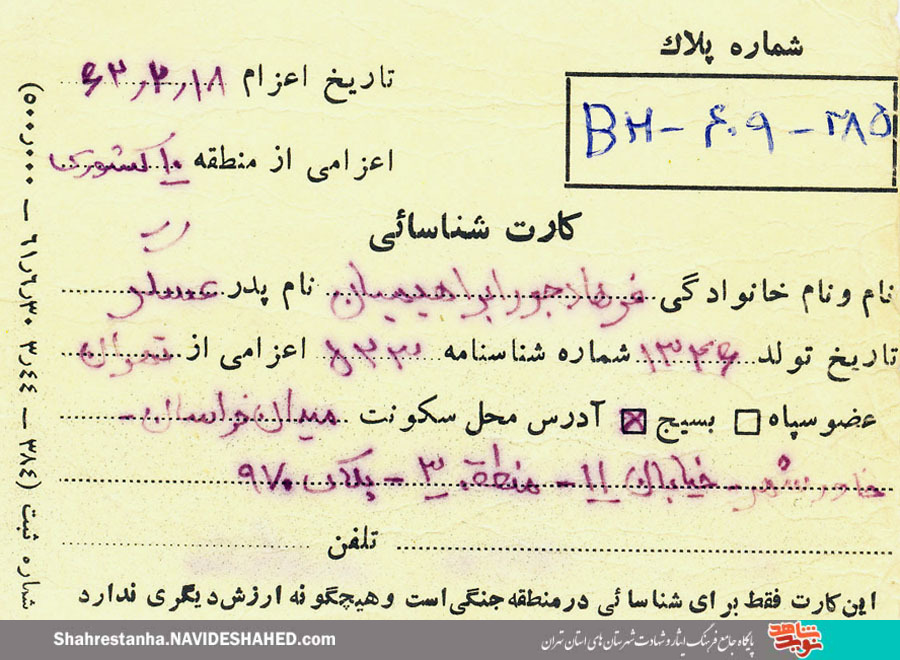 شماره پلاك
BH - ۶۰۹ - ۳۸۵
تاریخ اعزام ۶۲,۲,۱۸
اعزامی از منطقه ۱۰ کشوری
کارت شناسائی
نام و نام خانوادگی فرهاد جورابراهیمیان نام پدر عسگر
تاریخ تولد ۱۳۴۶ شماره شناسنامه ۸۳۳ اعزامی از تهران
عضو سپاه بسیج آدرس محل سکونت میدان خراسان -
خاورشهر - خیابان ۱۱ - منطقه ۳ - پلاک ۹۷۰
تلفن
این کارت فقط برای شناسائی در منطقه جنگی است و هیچگونه ارزش دیگری ندارد
شماره ثبت (۳۸٤ — ٤٤ر۳ ۳۰ر٦ر٦۱ — ۵۰۰٫۰۰۰)
Shahrestanha.NAVIDESHAHED.com
پایگاه جامع فرهنگ ایثار و شهادت شهرستان های استان تهران
نوید شاهد